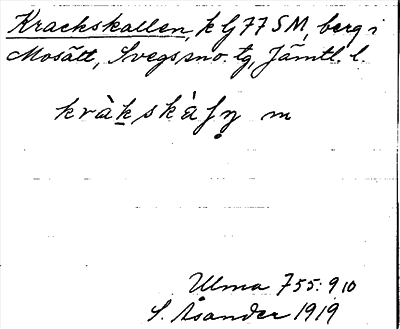 Krackskallen, k G 77 SM, berg i
Mosätt, Svegs sn. tg, Jämtl. l.
kràkskàʃn̥ m
Ulma 755: 9 10
S. Åsander 1919